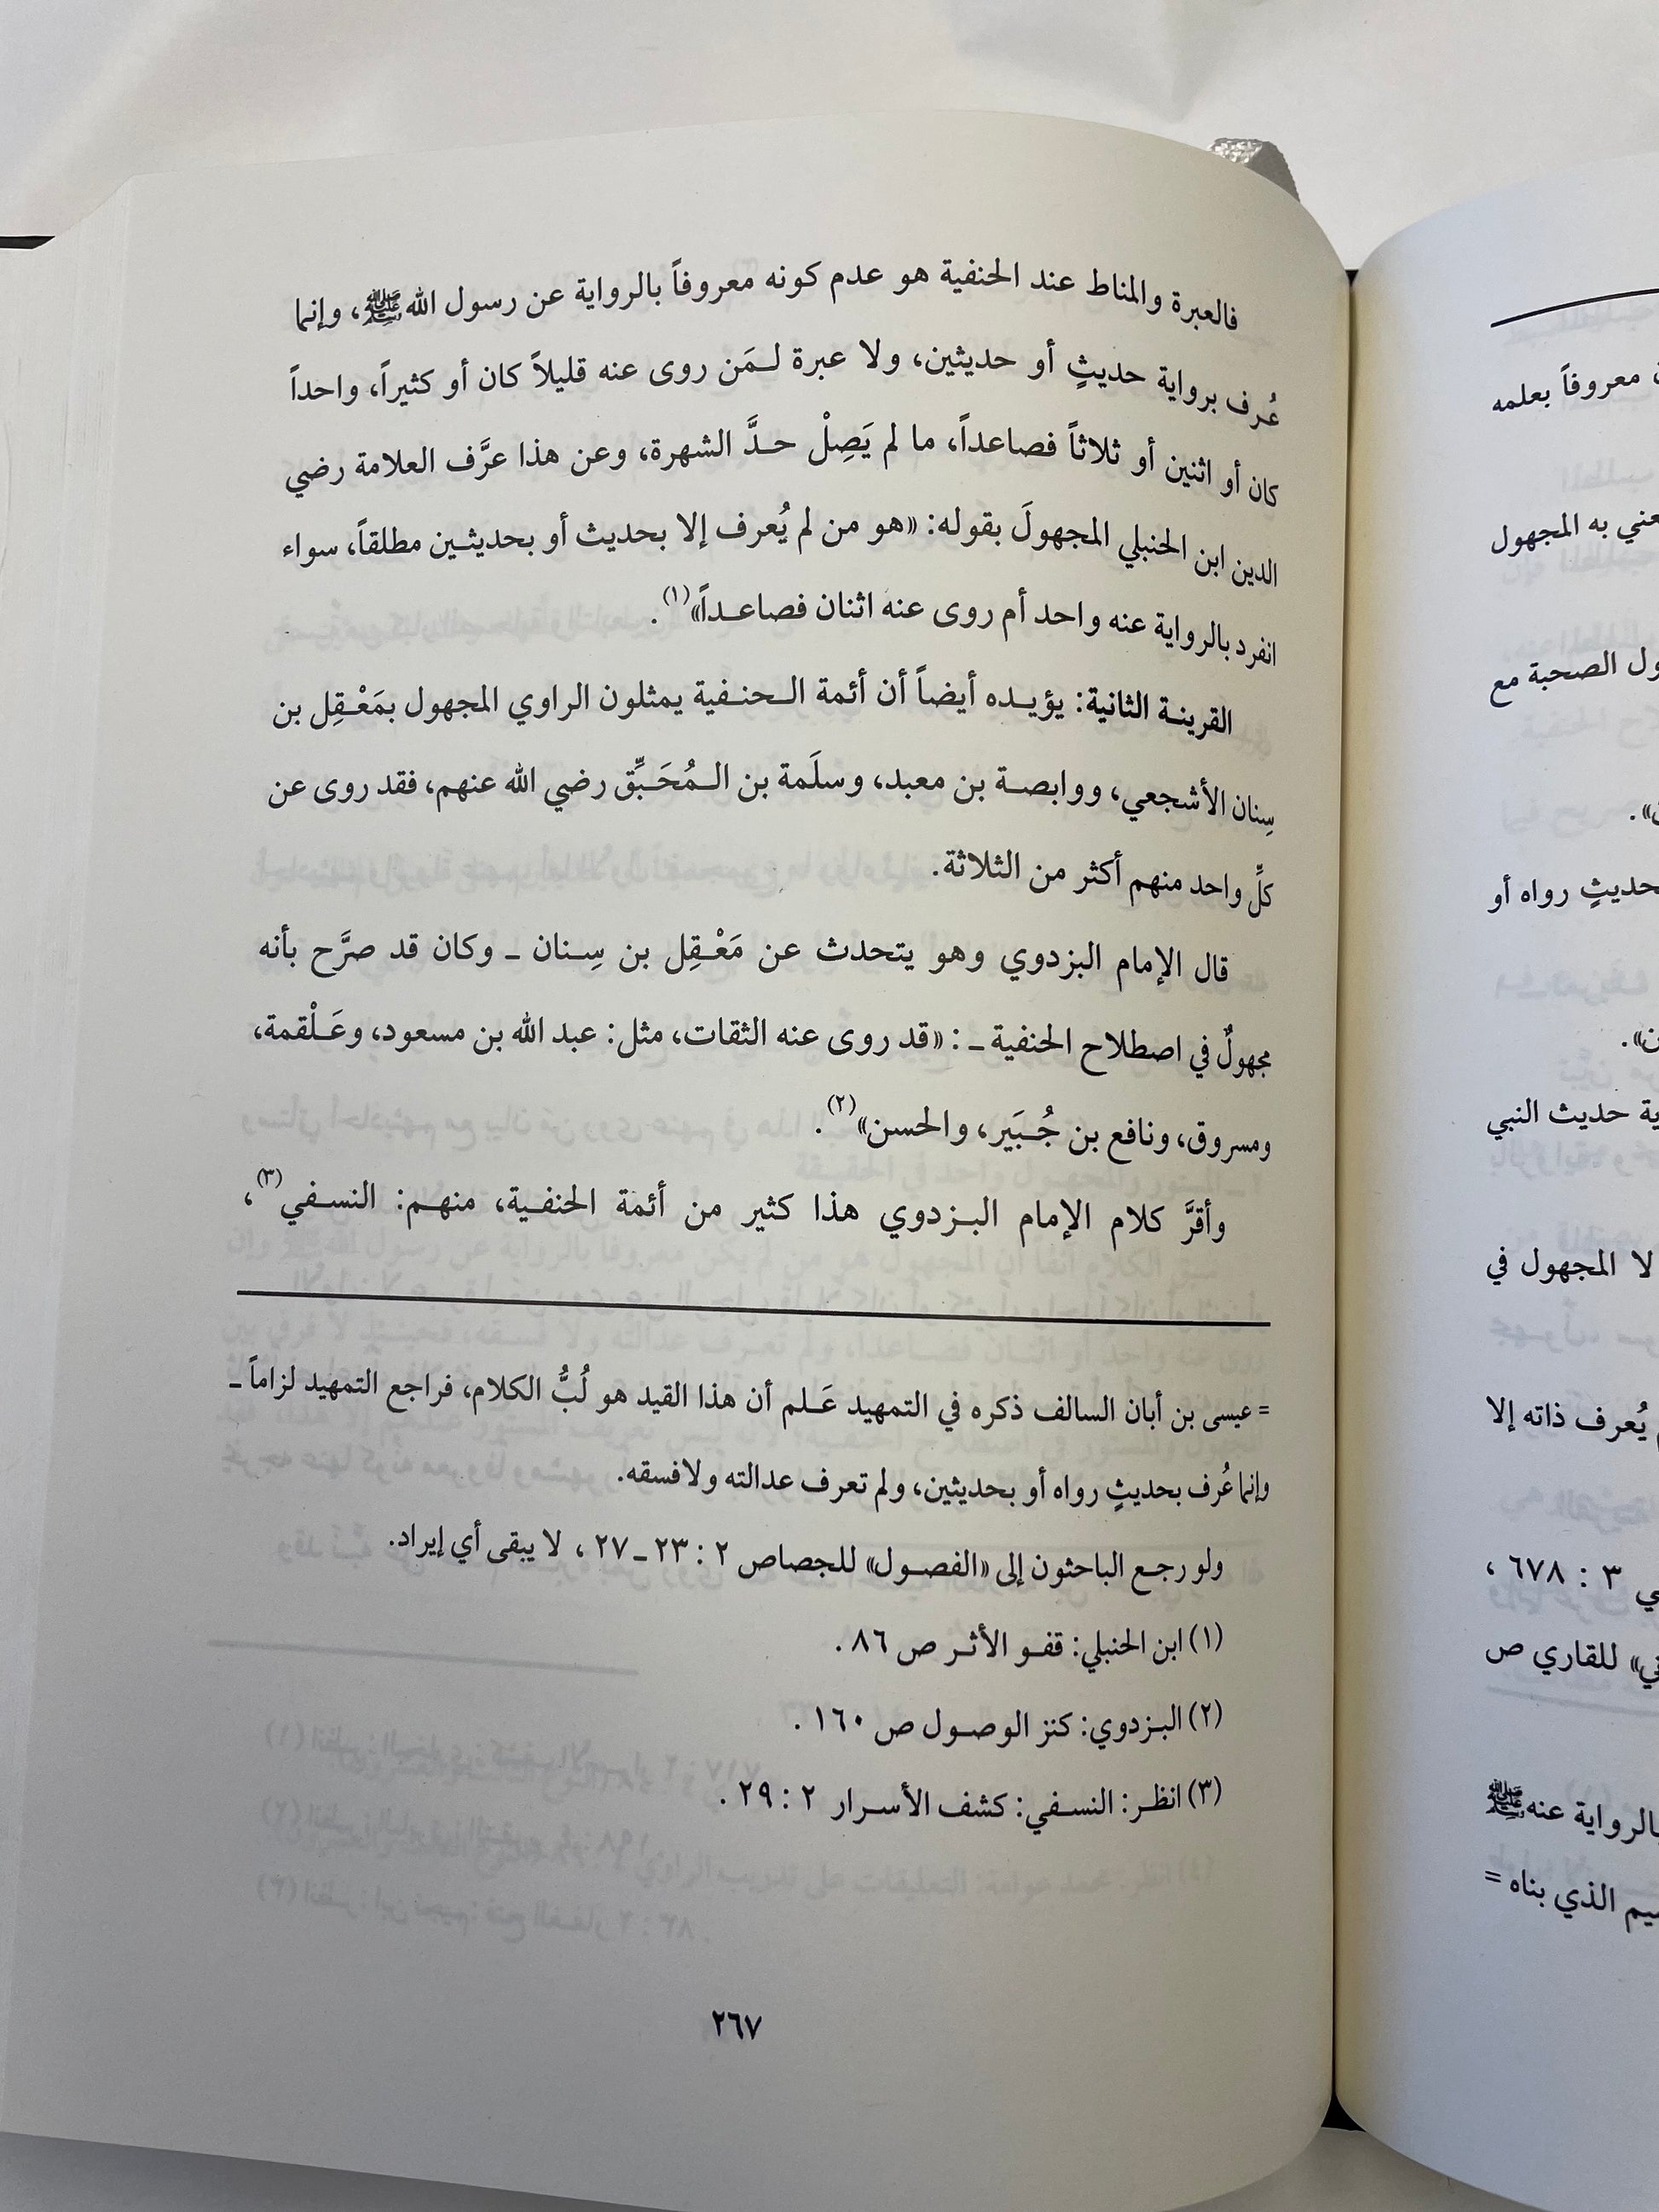 فالعبرة والمناط عند الحنفية هو عدم كونه معروفاً بالرواية عن رسول الله ﷺ، وإنما
عُرف برواية حديثٍ أو حديثين، ولا عبرة لـمَن روى عنه قليلاً كان أو كثيراً، واحداً
كان أو اثنين أو ثلاثاً فصاعداً، ما لم يَصِلْ حدَّ الشهرة، وعن هذا عرَّف العلامة رضي
الدين ابن الحنبلي المجهولَ بقوله: «هو من لم يُعرف إلا بحديث أو بحديثين مطلقاً، سواء
انفرد بالرواية عنه واحد أم روى عنه اثنان فصاعداً»(١).
القرينة الثانية: يؤيده أيضاً أن أئمة الحنفية يمثلون الراوي المجهول بمَعْقِل بن
سِنان الأشجعي، ووابصة بن معبد، وسلَمة بن الـمُحَبِّق رضي الله عنهم، فقد روى عن
كلِّ واحد منهم أكثر من الثلاثة.
قال الإمام البزدوي وهو يتحدث عن مَعْقِل بن سِنان ـ وكان قد صرَّح بأنه
مجهولٌ في اصطلاح الحنفية ـ: «قد روى عنه الثقات، مثل: عبد الله بن مسعود، وعَلْقمة،
ومسروق، ونافع بن جُبَير، والحسن»(٢).
وأقرَّ كلام الإمام البزدوي هذا كثير من أئمة الحنفية، منهم: النسفي(٣)،
= عيسى بن أبان السالف ذكره في التمهيد عَلم أن هذا القيد هو لُبُّ الكلام، فراجع التمهيد لزاماً ـ
وإنما عُرف بحديثٍ رواه أو بحديثين، ولم تعرف عدالته ولا فسقه.
ولو رجع الباحثون إلى «الفصول» للجصاص ٢ : ٢٣ ـ ٢٧، لا يبقى أي إيراد.
(١) ابن الحنبلي: قفو الأثر ص ٨٦.
(٢) البزدوي: كنز الوصول ص ١٦٠.
(٣) انظر: النسفي: كشف الأسرار ٢ : ٢٩.
٢٦٧
معروفاً بعلمه
به المجهول
الصحبة مع
رواه أو
حديث النبي
لا المجهول في
يُعرف ذاته إلا
٣ : ٦٧٨،
للقاري ص
عنه ﷺ
الذي بناه =